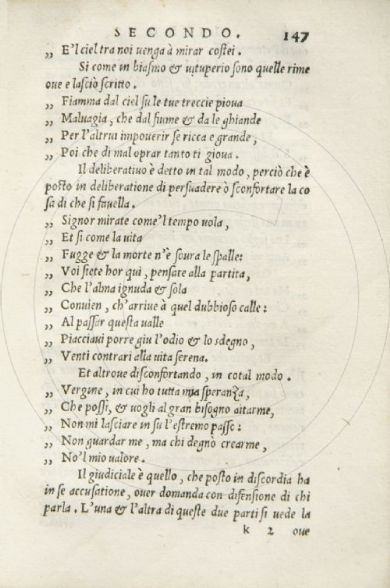 SECONDO. 147
„ E'l ciel tra noi uenga à mirar costei.
Si come in biasmo & uituperio sono quelle rime
oue e lasciò scritto.
„ Fiamma dal ciel su le tue treccie pioua
„ Maluagia, che dal fiume & da le ghiande
„ Per l'altrui impouerir se ricca e grande,
„ Poi che di mal oprar tanto ti gioua.
Il deliberatiuo è detto in tal modo, perciò che è
posto in deliberatione di persuadere ò sconfortare la co
sa di che si fauella.
„ Signor mirate come'l tempo uola,
„ Et si come la uita
„ Fugge & la morte n'è soura le spalle:
„ Voi siete hor qui, pensate alla partita,
„ Che l'alma ignuda & sola
„ Conuien, ch'arriue à quel dubbioso calle:
„ Al passar questa ualle
„ Piacciaui porre giu l'odio & lo sdegno,
„ Venti contrari alla uita serena.
Et altroue disconfortando, in cotal modo.
„ Vergine, in cui ho tutta mia speranza,
„ Che possi, & uogli al gran bisogno aitarme,
„ Non mi lasciare in su l'estremo passo:
„ Non guardar me, ma chi degnò crearme,
„ No'l mio ualore.
Il giudiciale è quello, che posto in discordia ha
in se accusatione, ouer domanda con difensione di chi
parla. L'una & l'altra di queste due parti si uede la
k 2 oue